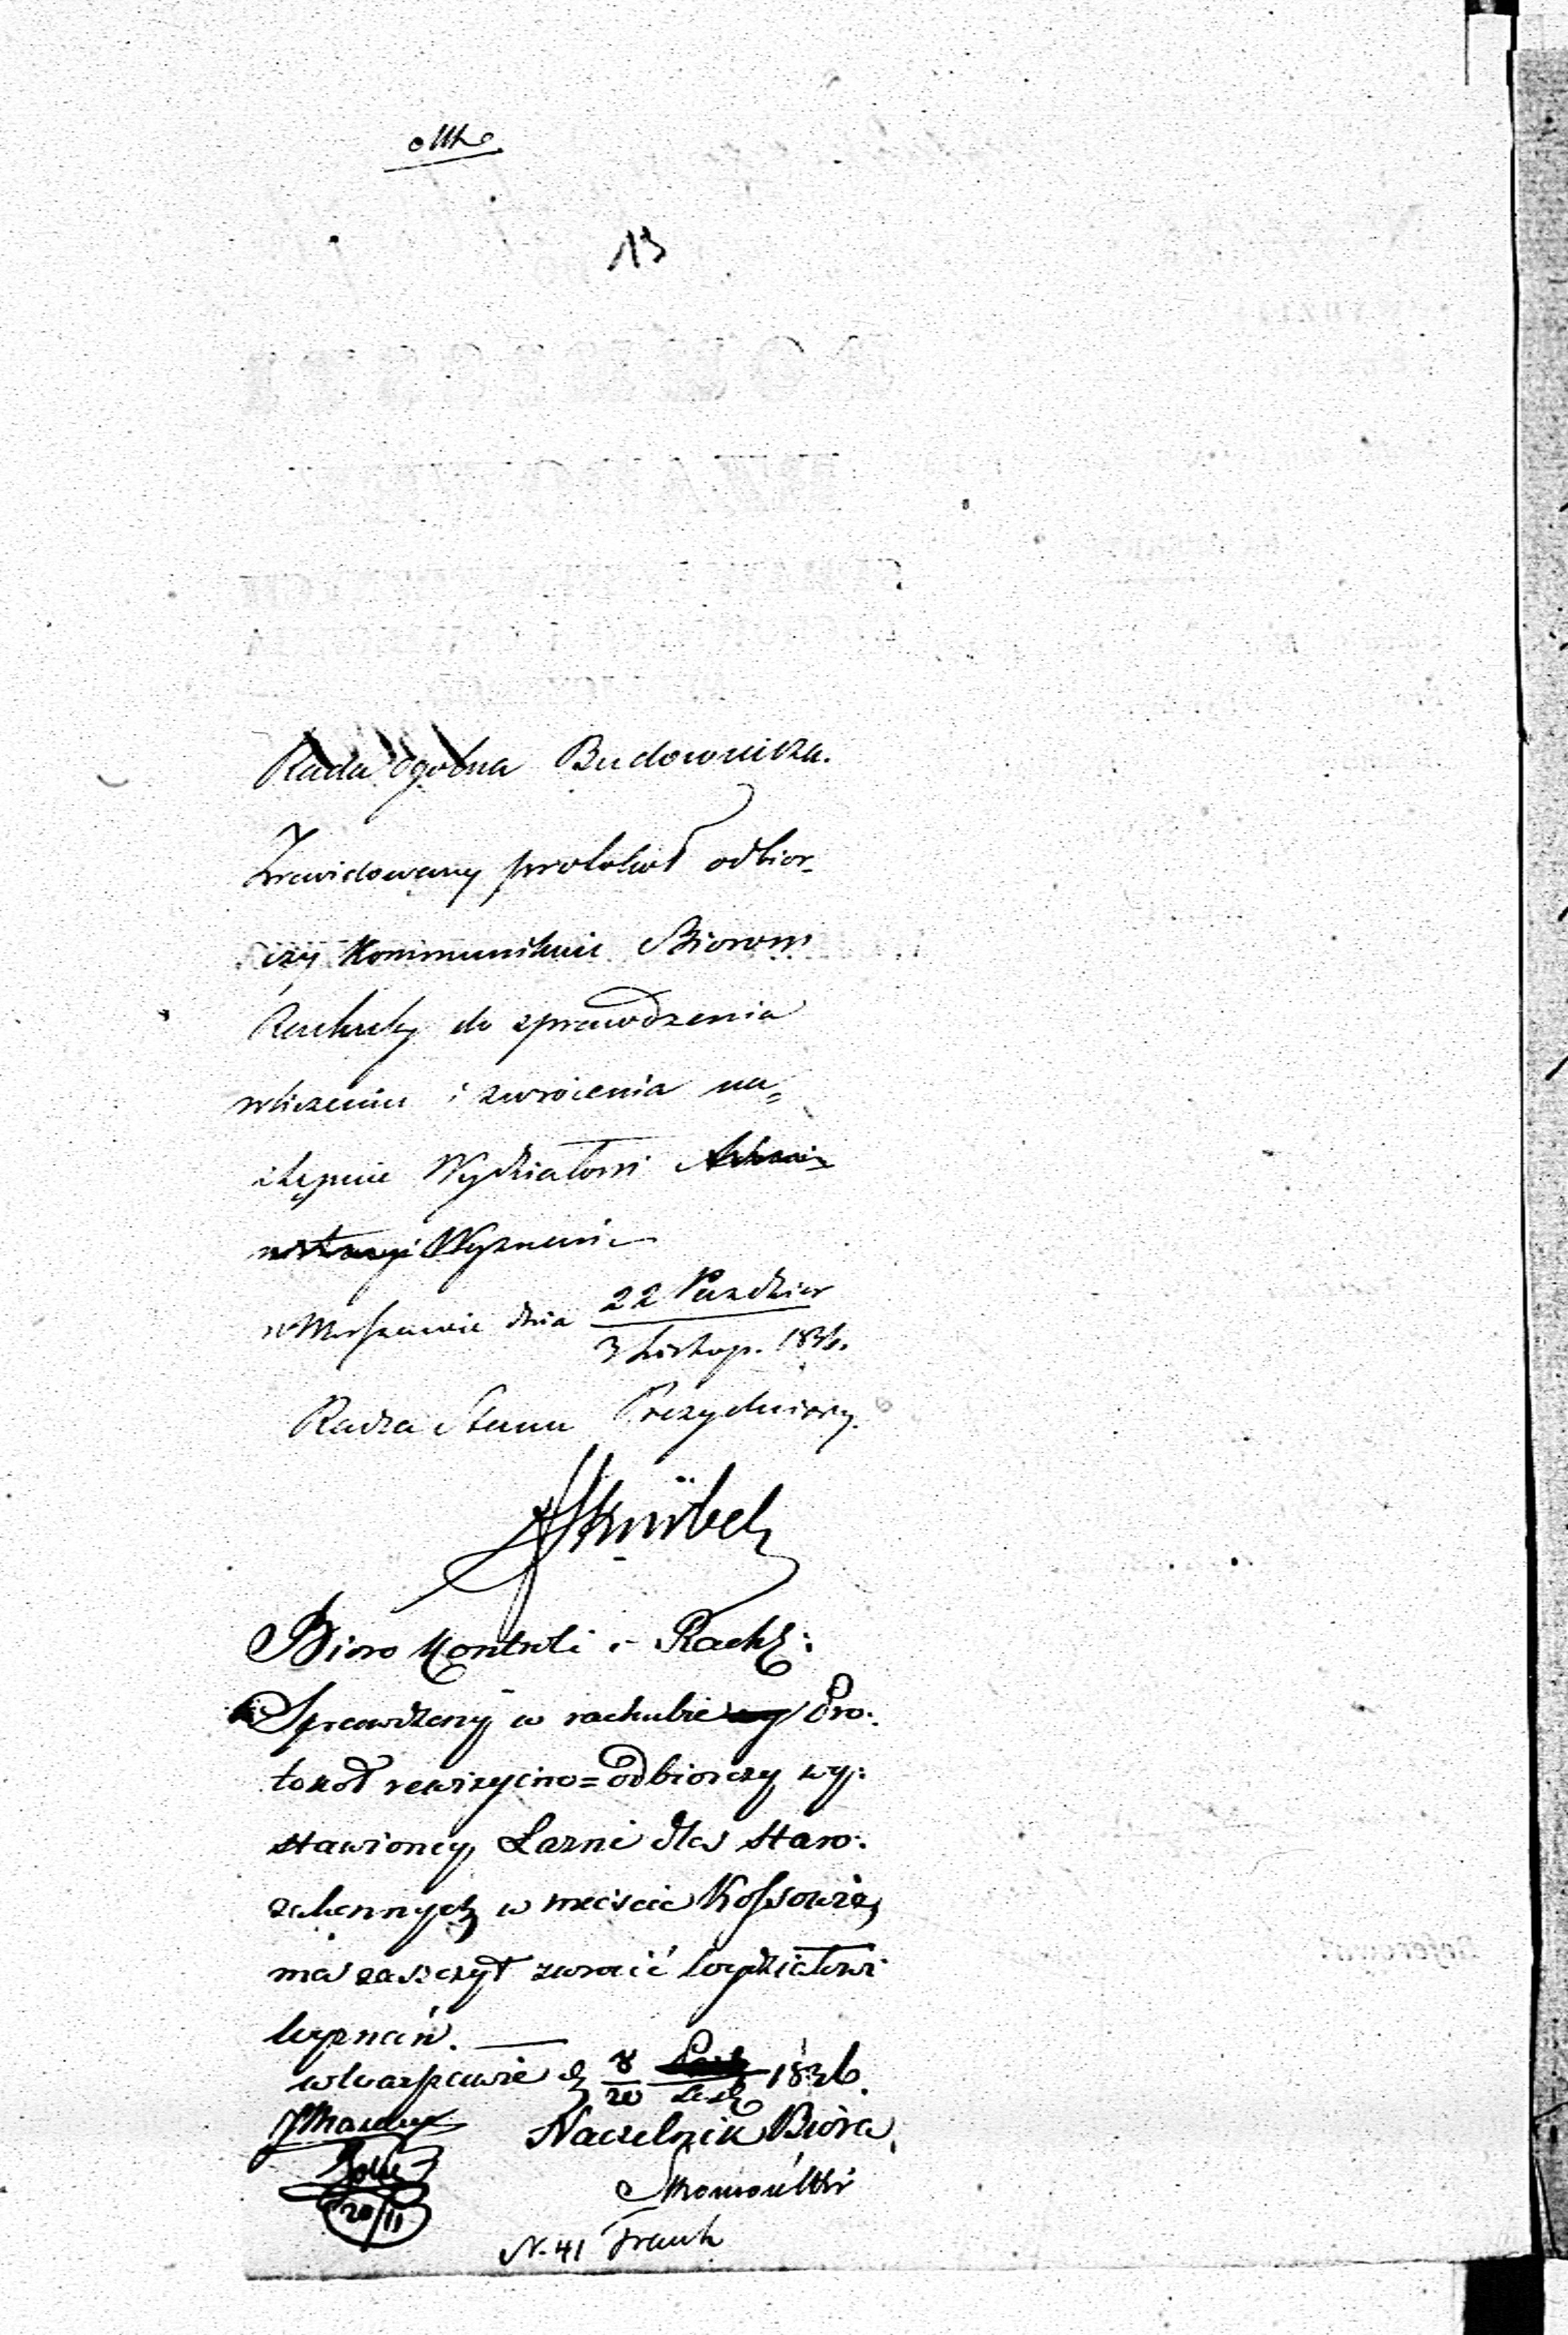 13
Rada Ogólna Budownicza.
Zrewidowany protokuł odbior-
czy kommunikuie Biorowi
Rachuby do sprawdzenia
wliczeniu i zwrócenia na=
stępnie Wydziałowi
Wyznani
w Warszawie dnia 22 Paździer
3 Listop. 1836.
Radca Stanu Prezyduiący
Bioro Kontroli i Rachß:
Sprawdzony w rachubie Pro:
tokoł rewizyino=odbiorczy wy:
stawioney Łazni dla staro:
zakonnych w mieście Kossowie,
ma zaszczyt zwrócić Wydziałowi
Wyznań.
w Warszawie d 8/20 1836.
Naczelnik Biora
20/11
N. 41 Frank